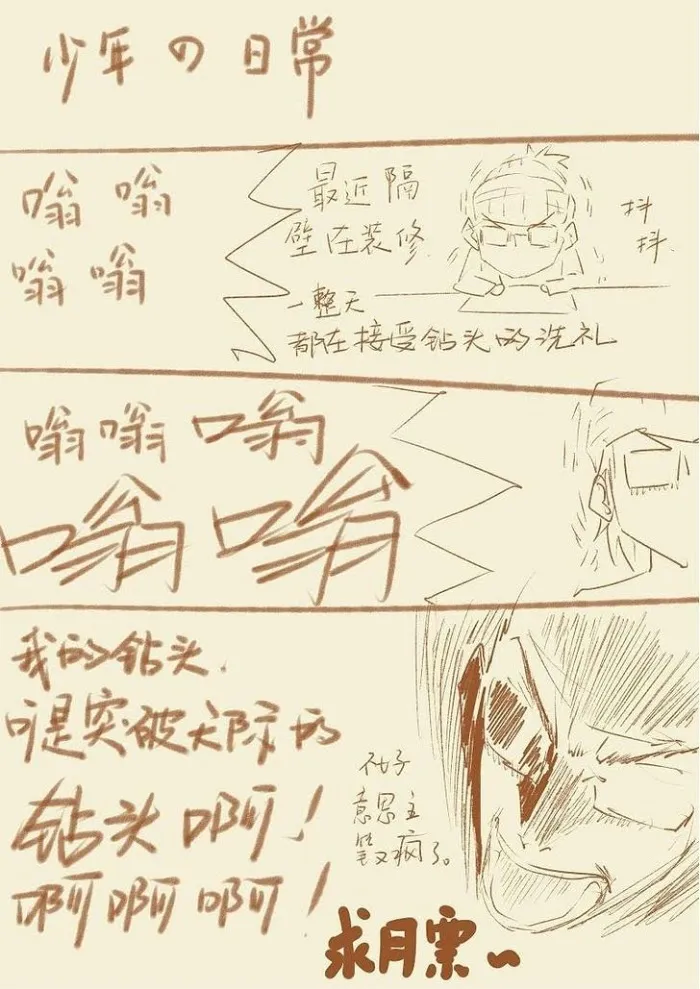 少年の日常
嗡嗡
嗡嗡
最近隔
壁在装修.
一整天
都在接受钻头的洗礼
抖
抖.
嗡嗡嗡
嗡嗡
我的钻头.
可是突破天际的
钻头啊!
啊啊啊!
不好
意思主
笔又疯了。
求月票~